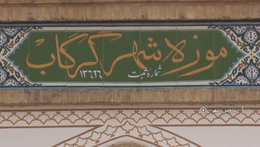 موزه شهر گرگاب
شماره ثبت
۱۳۶۲۶